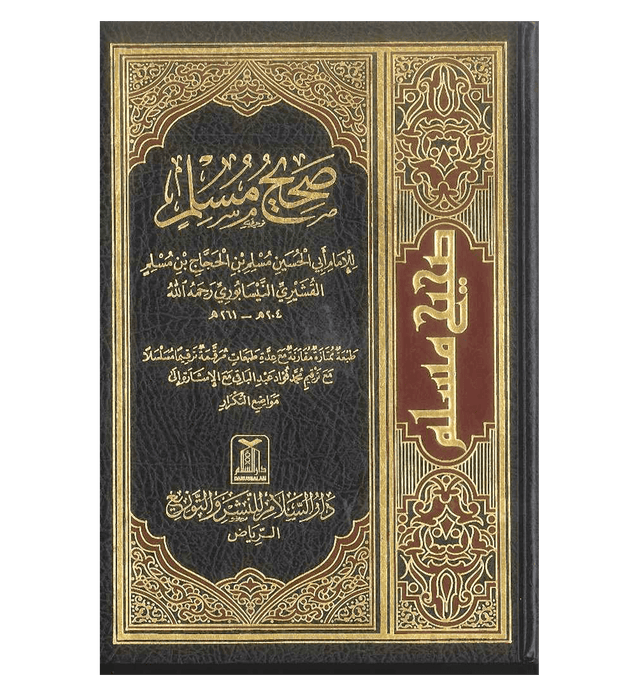 صحيح مسلم
للإمام أبي الحسين مسلم بن الحجاج بن مسلم
القشيري النيسابوري رحمه الله
٢٠٤ هـ - ٢٦١ هـ
طبعة ممتازة مقارنة مع عدة طبعات ومرقمة ترقيما مسلسلا
مع ترقيم محمد فؤاد عبد الباقي مع الإشارة إلى
مواضع التكرار
دار السلام
DARUSSALAM
دار السلام للنشر والتوزيع
الرياض
صحيح مسلم